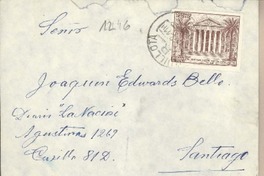 Señor
1246
Joaquin Edwards Bello
Diario "La Nacion"
Agustinas 1269
Casilla 81D.
Santiago